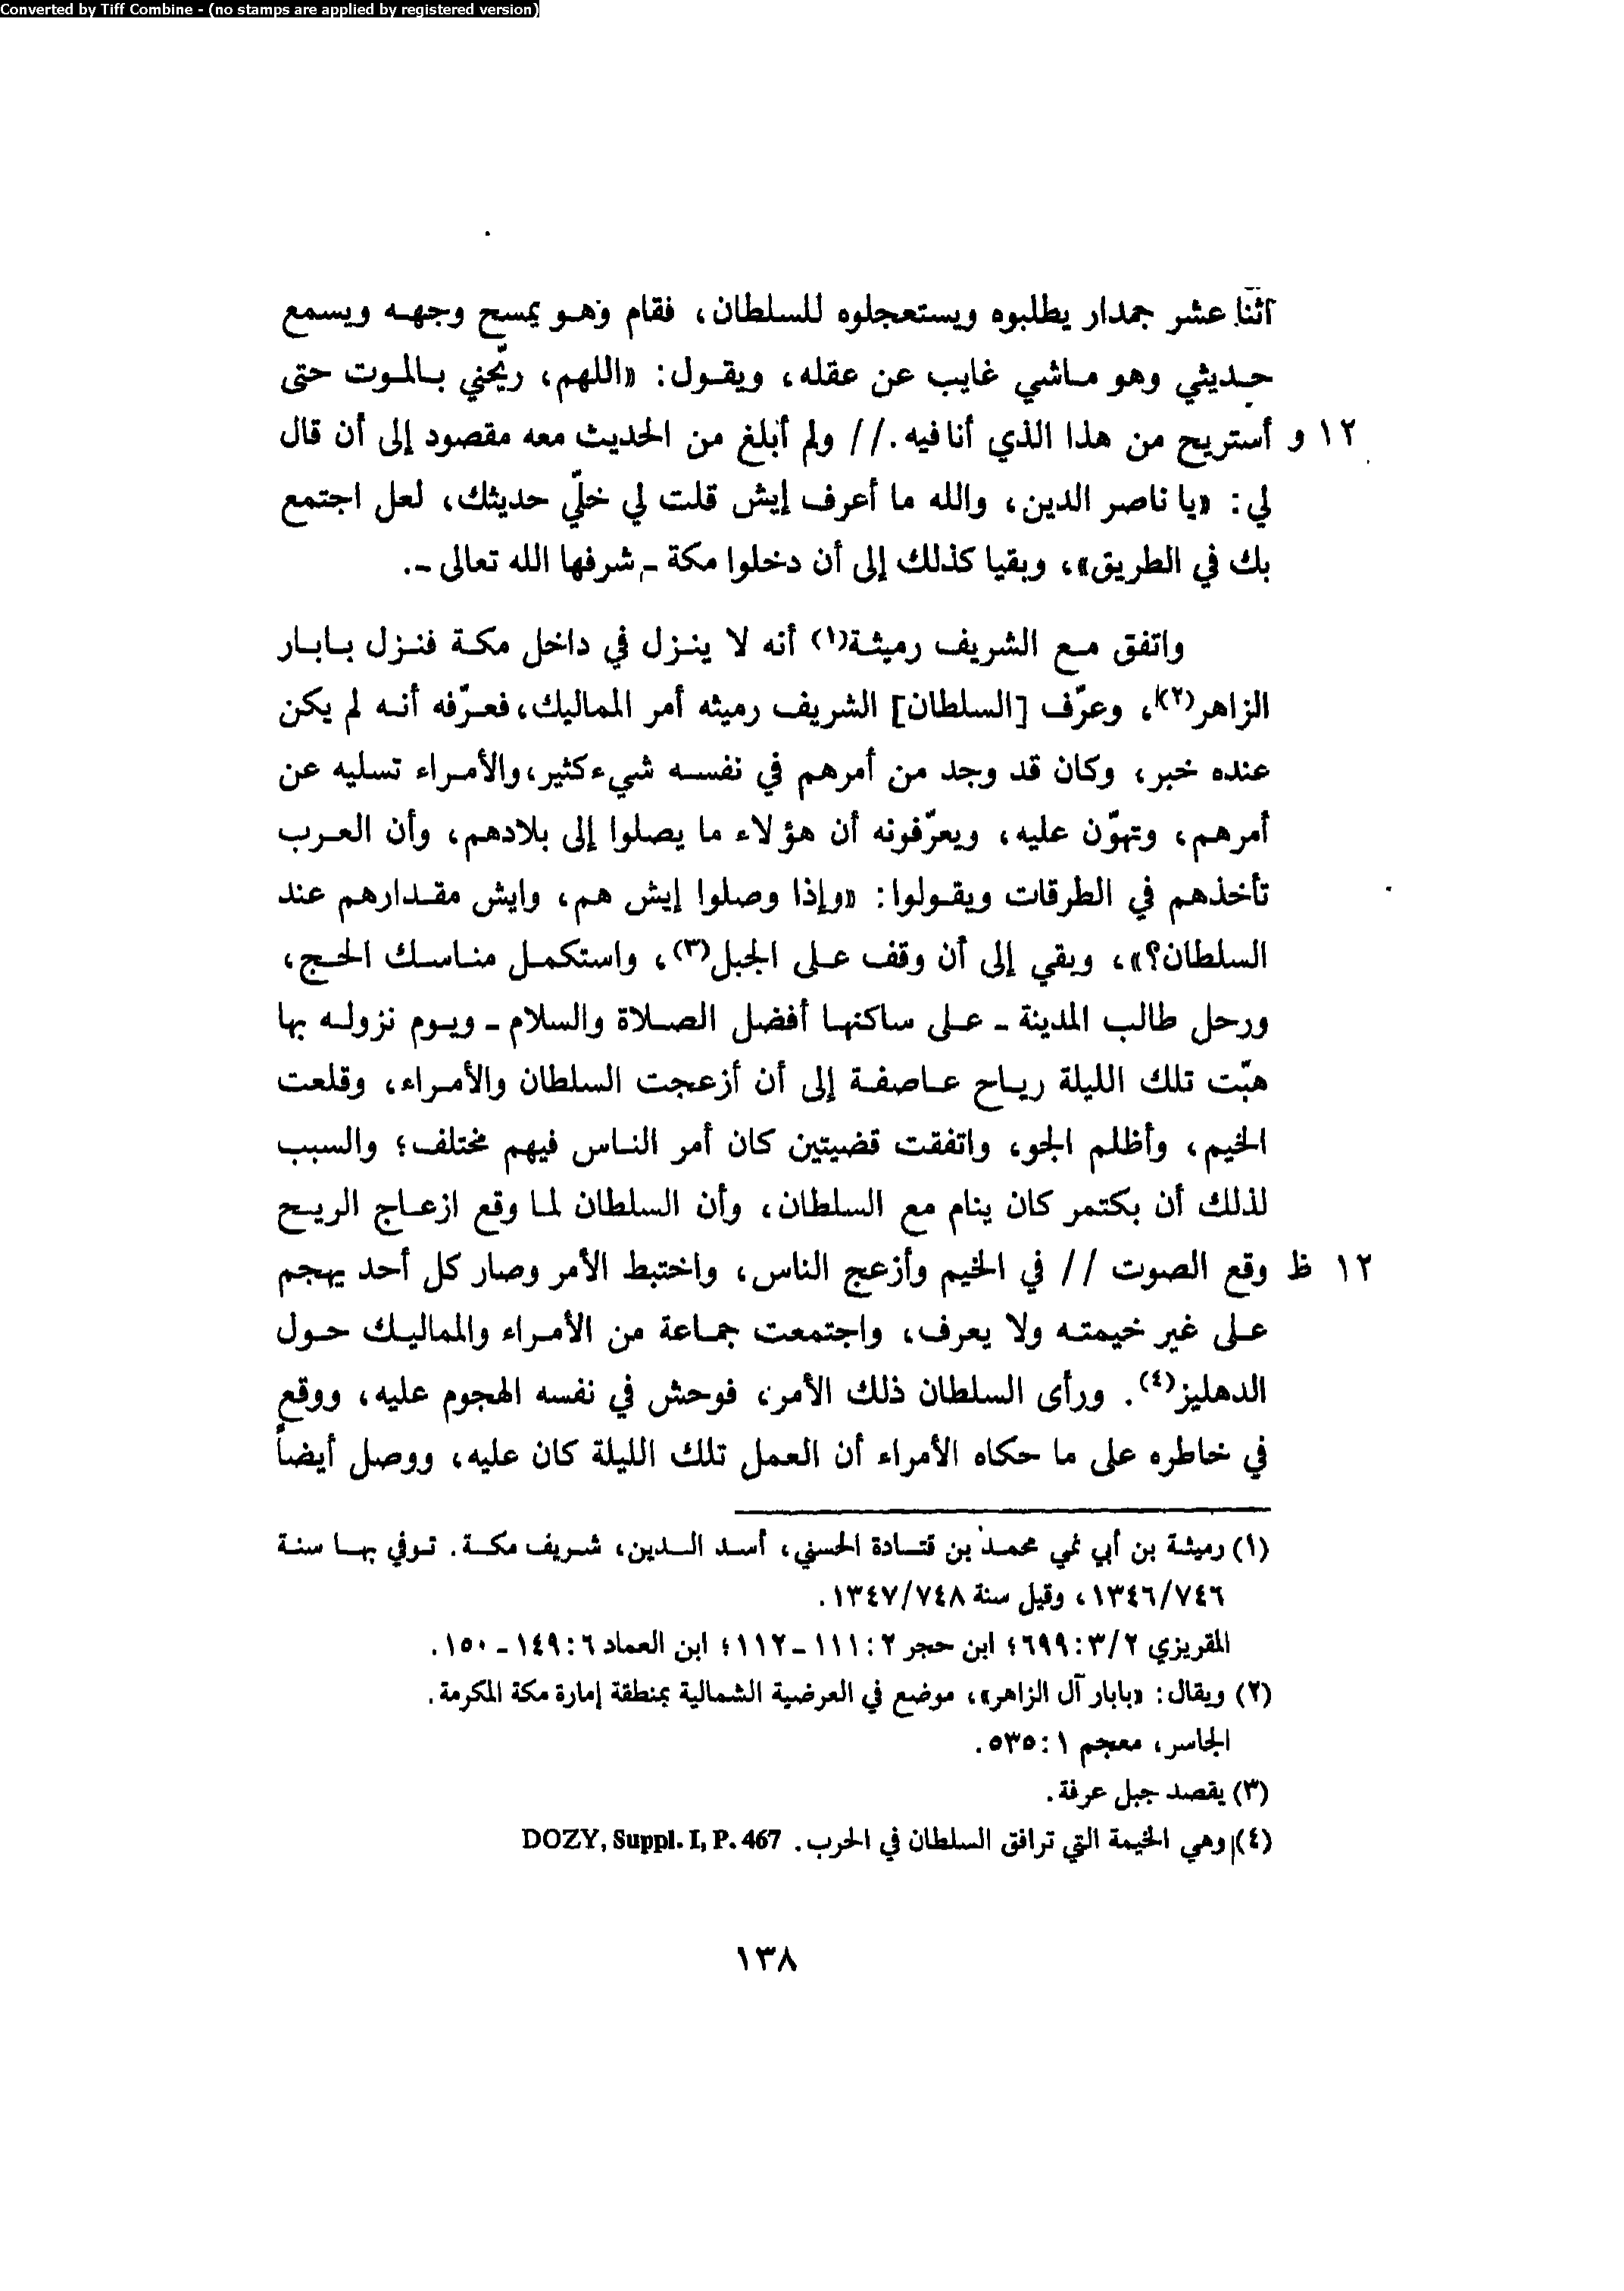 Converted by Tiff Combine - (no stamps are applied by registered version)
اثنا عشر جمدار يطلبوه ويستعجلوه للسلطان، فقام وهو يمسح وجهه ويسمع
حديثي وهو ماشي غايب عن عقله، ويقول: «اللهم، ريّحني بالموت حتى
١٢ و أستريح من هذا الذي أنا فيه. // ولم أبلغ من الحديث معه مقصود إلى أن قال
لي: «يا ناصر الدين، والله ما أعرف إيش قلت لي خلّي حديثك، لعل اجتمع
بك في الطريق»، وبقيا كذلك إلى أن دخلوا مكة - شرفها الله تعالى -.
واتفق مع الشريف رميثة(١) أنه لا ينزل في داخل مكة فنزل بابار
الزاهر(٢)، وعرّف [السلطان] الشريف رميثه أمر المماليك، فعرّفه أنه لم يكن
عنده خبر، وكان قد وجد من أمرهم في نفسه شيء كثير، والأمراء تسليه عن
أمرهم، وتهوّن عليه، ويعرّفونه أن هؤلاء ما يصلوا إلى بلادهم، وأن العرب
تأخذهم في الطرقات ويقولوا: «وإذا وصلوا إيش هم، وايش مقدارهم عند
السلطان؟»، وبقي إلى أن وقف على الجبل(٣)، واستكمل مناسك الحج،
ورحل طالب المدينة - على ساكنها أفضل الصلاة والسلام - ويوم نزوله بها
هبّت تلك الليلة رياح عاصفة إلى أن أزعجت السلطان والأمراء، وقلعت
الخيم، وأظلم الجو، واتفقت قضيتين كان أمر الناس فيهم مختلف؛ والسبب
لذلك أن بكتمر كان ينام مع السلطان، وأن السلطان لما وقع ازعاج الريح
١٢ ظ وقع الصوت // في الخيم وأزعج الناس، واختبط الأمر وصار كل أحد يهجم
على غير خيمته ولا يعرف، واجتمعت جماعة من الأمراء والمماليك حول
الدهليز(٤). ورأى السلطان ذلك الأمر، فوحش في نفسه الهجوم عليه، ووقع
في خاطره على ما حكاه الأمراء أن العمل تلك الليلة كان عليه، ووصل أيضاً
(١) رميثة بن أبي نمي محمد بن قتادة الحسني، أسد الدين، شريف مكة. توفي بها سنة
١٣٤٦/٧٤٦، وقيل سنة ١٣٤٧/٧٤٨.
المقريزي ٣/٢:٦٩٩؛ ابن حجر ٢:١١١-١١٢؛ ابن العماد ٦:١٤٩-١٥٠.
(٢) ويقال: «بابار آل الزاهر»، موضع في العرضية الشمالية بمنطقة إمارة مكة المكرمة.
الجاسر، معجم ١:٥٣٥.
(٣) يقصد جبل عرفة.
(٤) وهي الخيمة التي ترافق السلطان في الحرب. DOZY, Suppl. I, P. 467
١٣٨